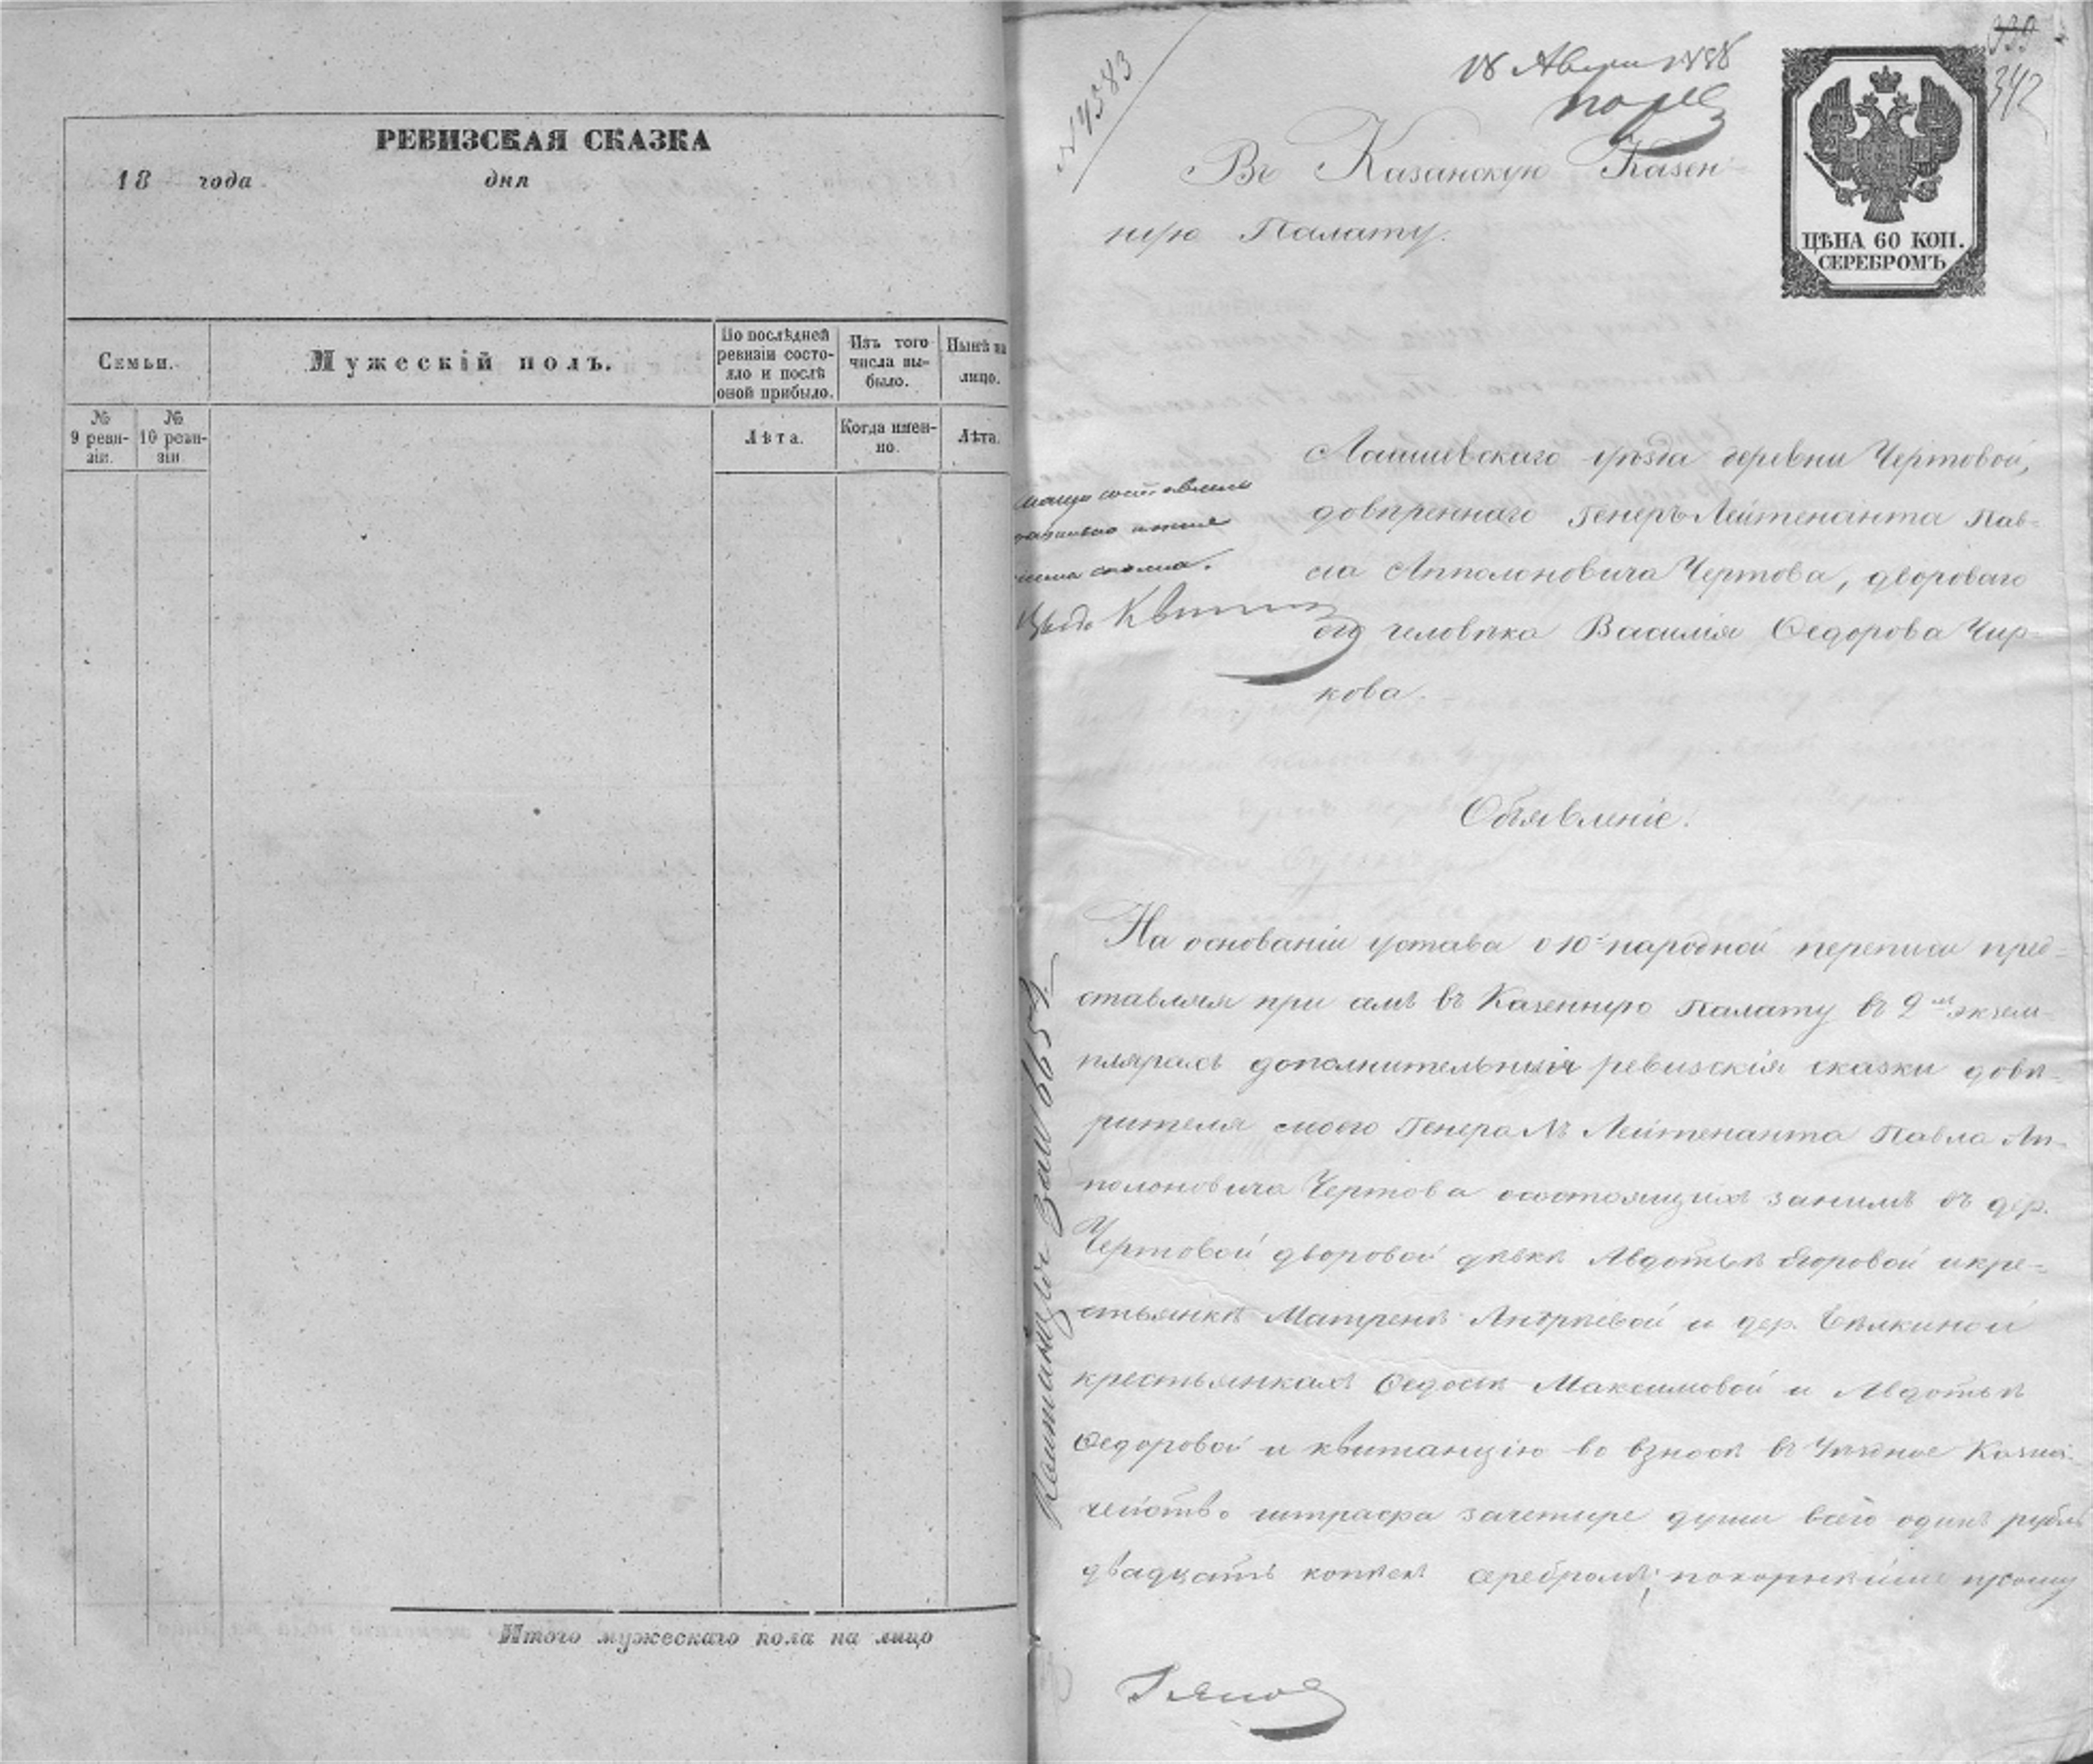 РЕВИЗСКАЯ СКАЗКА
18 года дня
Семьи.
Мужескій полъ.
По послѣдней
ревизіи состо-
яло и послѣ
оной прибыло.
Изъ того
числа вы-
было.
Нынѣ на
лицо.
№
9 реви-
зіи.
№
10 реви-
зіи.
Лѣта.
Когда имен-
но.
Лѣта.
Итого мужескаго пола на лицо
339
342
18
№ 4583
ЦѢНА 60 КОП.
СЕРЕБРОМЪ
Въ Казанскую Казен-
ную Палату.
Лаишевскаго уѣзда деревни Чертовой,
довѣреннаго Генералъ Лейтенанта Пав-
ла Апполоновича Чертова, двороваго
его человѣка Василія Ѳедорова Чир-
кова.
Объявленіе.
На основаніи устава о 10й народной переписи пред-
ставляя при семъ въ Казенную Палату въ 2хъ экзем-
плярахъ дополнительныя ревизскія сказки довѣ-
рителя моего Генералъ Лейтенанта Павла Ап-
полоновича Чертова о состоящихъ занимъ въ дер.
Чертовой дворовой дѣвкѣ Авдотьѣ Егоровой икре-
стьянкѣ Матренѣ Андрѣевой и дер. Бѣлкиной
крестьянкахъ Ѳедосьѣ Максимовой и Авдотьѣ
Ѳедоровой и квитанцію во взносѣ въ Уѣздное Казна-
чейство штрафа зачетыре души всего одинъ рубль
двадцать копѣекъ серебромъ; покорнѣйше прошу